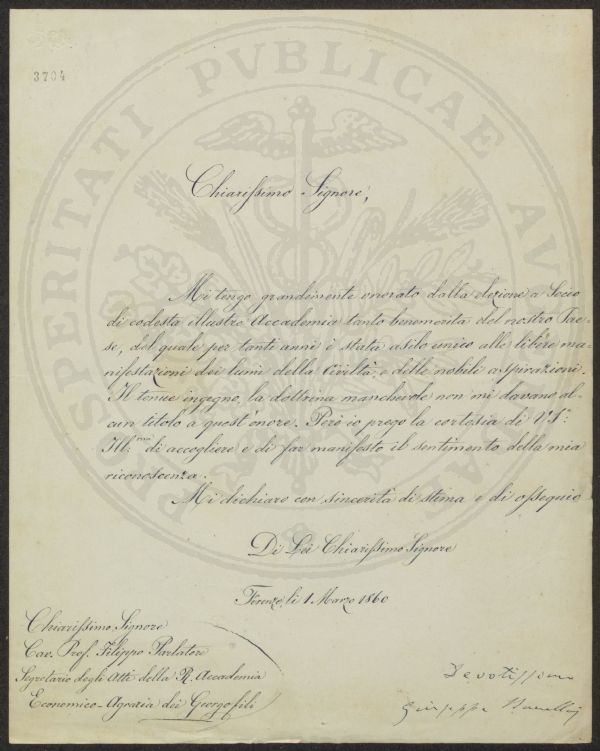 3704
PROSPERITATI PVBLICAE AV
Chiarissimo Signore,
Mi tengo grandemente onorato dalla elezione a Socio
di codesta illustre Accademia tanto benemerita del nostro Pae-
se, del quale per tanti anni è stata asilo unico alle libere ma-
nifestazioni dei lumi della Civiltà, e delle nobile aspirazioni.
Il tenue ingegno, la dottrina manchevole non mi davano al-
cun titolo a quest'onore. Però io prego la cortesia di V. S.
Ill:ma di accogliere e di far manifesto il sentimento della mia
riconoscenza.
Mi dichiaro con sincerità di stima e di ossequio
Di Lei Chiarissimo Signore
Firenze, li 1. Marzo 1860
Chiarissimo Signore
Cav. Prof. Filippo Parlatore
Segretario degli Atti della R. Accademia
Economico-Agraria dei Georgofili
Devotissimo
Giuseppe